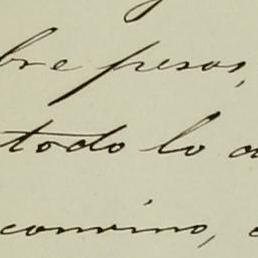 bre pesos,
todo lo a
convino,